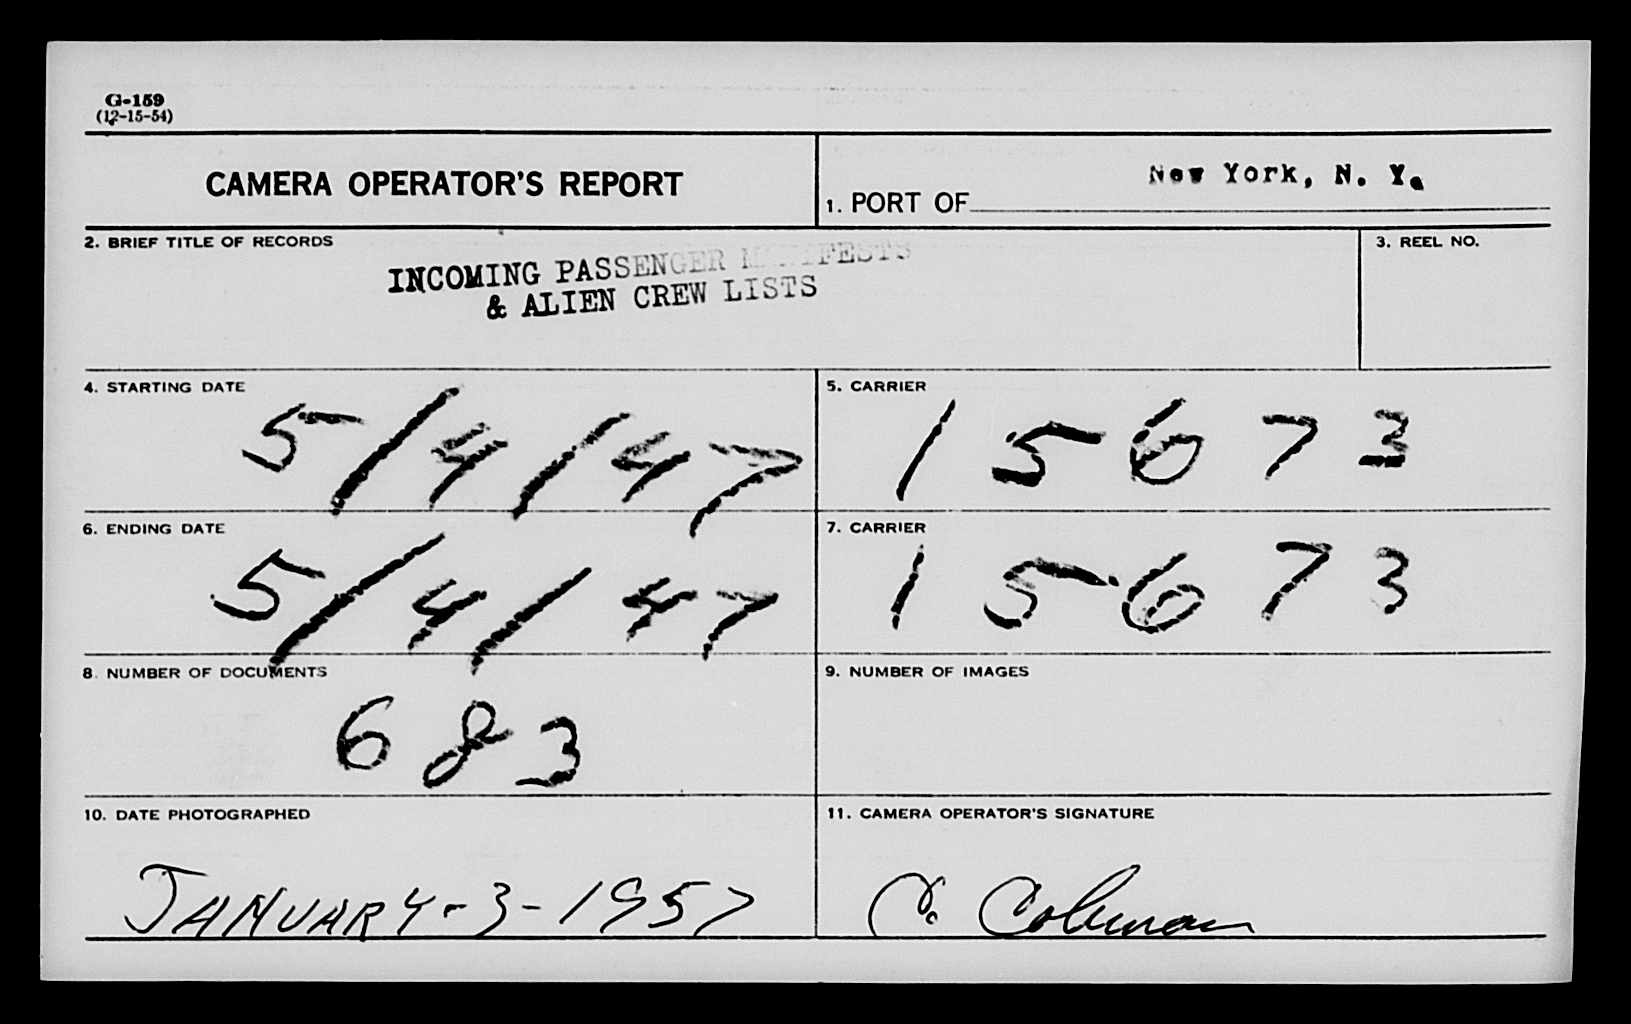 G-159
(12-15-54)
CAMERA OPERATOR'S REPORT
1. PORT OF New York, N. Y.
2. BRIEF TITLE OF RECORDS
INCOMING PASSENGER MANIFESTS
& ALIEN CREW LISTS
3. REEL NO.
4. STARTING DATE
5/4/47
5. CARRIER
15673
6. ENDING DATE
5/4/47
7. CARRIER
15673
8. NUMBER OF DOCUMENTS
683
9. NUMBER OF IMAGES
10. DATE PHOTOGRAPHED
JANUARY-3-1957
11. CAMERA OPERATOR'S SIGNATURE
C. Coleman